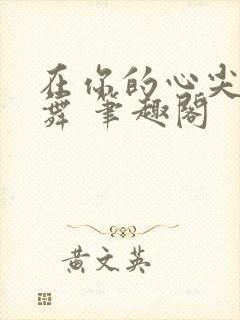 在你的心尖
舞 笔趣阁
黄文英